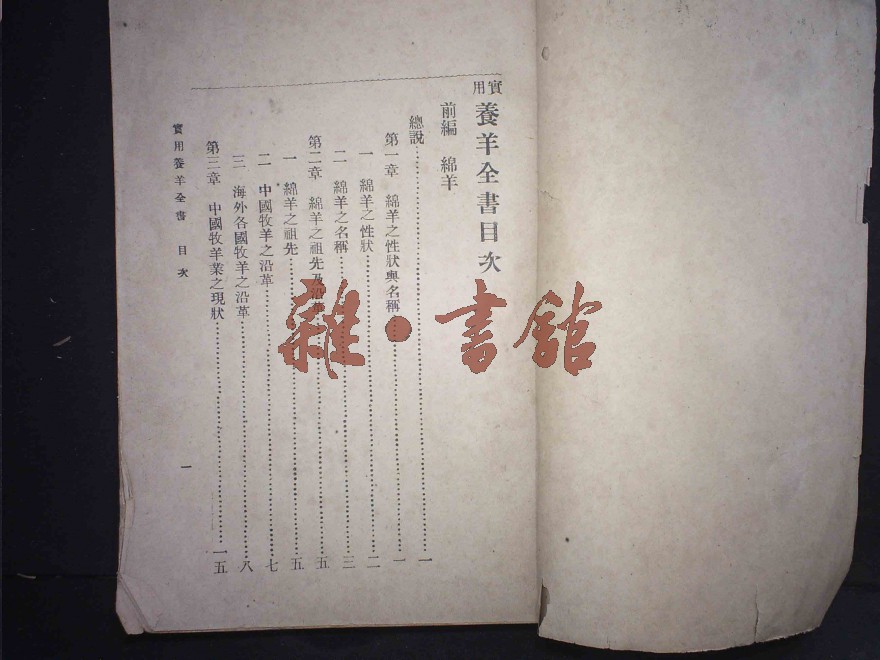 實用 養羊全書目次
前編　綿羊
總說……一
第一章　綿羊之性狀與名稱……一
一　綿羊之性狀……二
二　綿羊之名稱……三
第二章　綿羊之祖先及沿革……五
一　綿羊之祖先……五
二　中國牧羊之沿革……七
三　海外各國牧羊之沿革……八
第三章　中國牧羊業之現狀……一五
實用養羊全書　目次
一
雜·書館